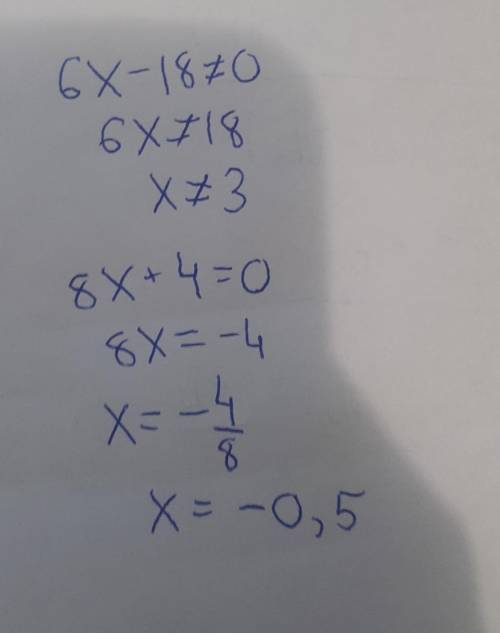 6x-18≠0
6x≠18
x≠3
8x+4=0
8x=-4
x=-4/8
x=-0,5